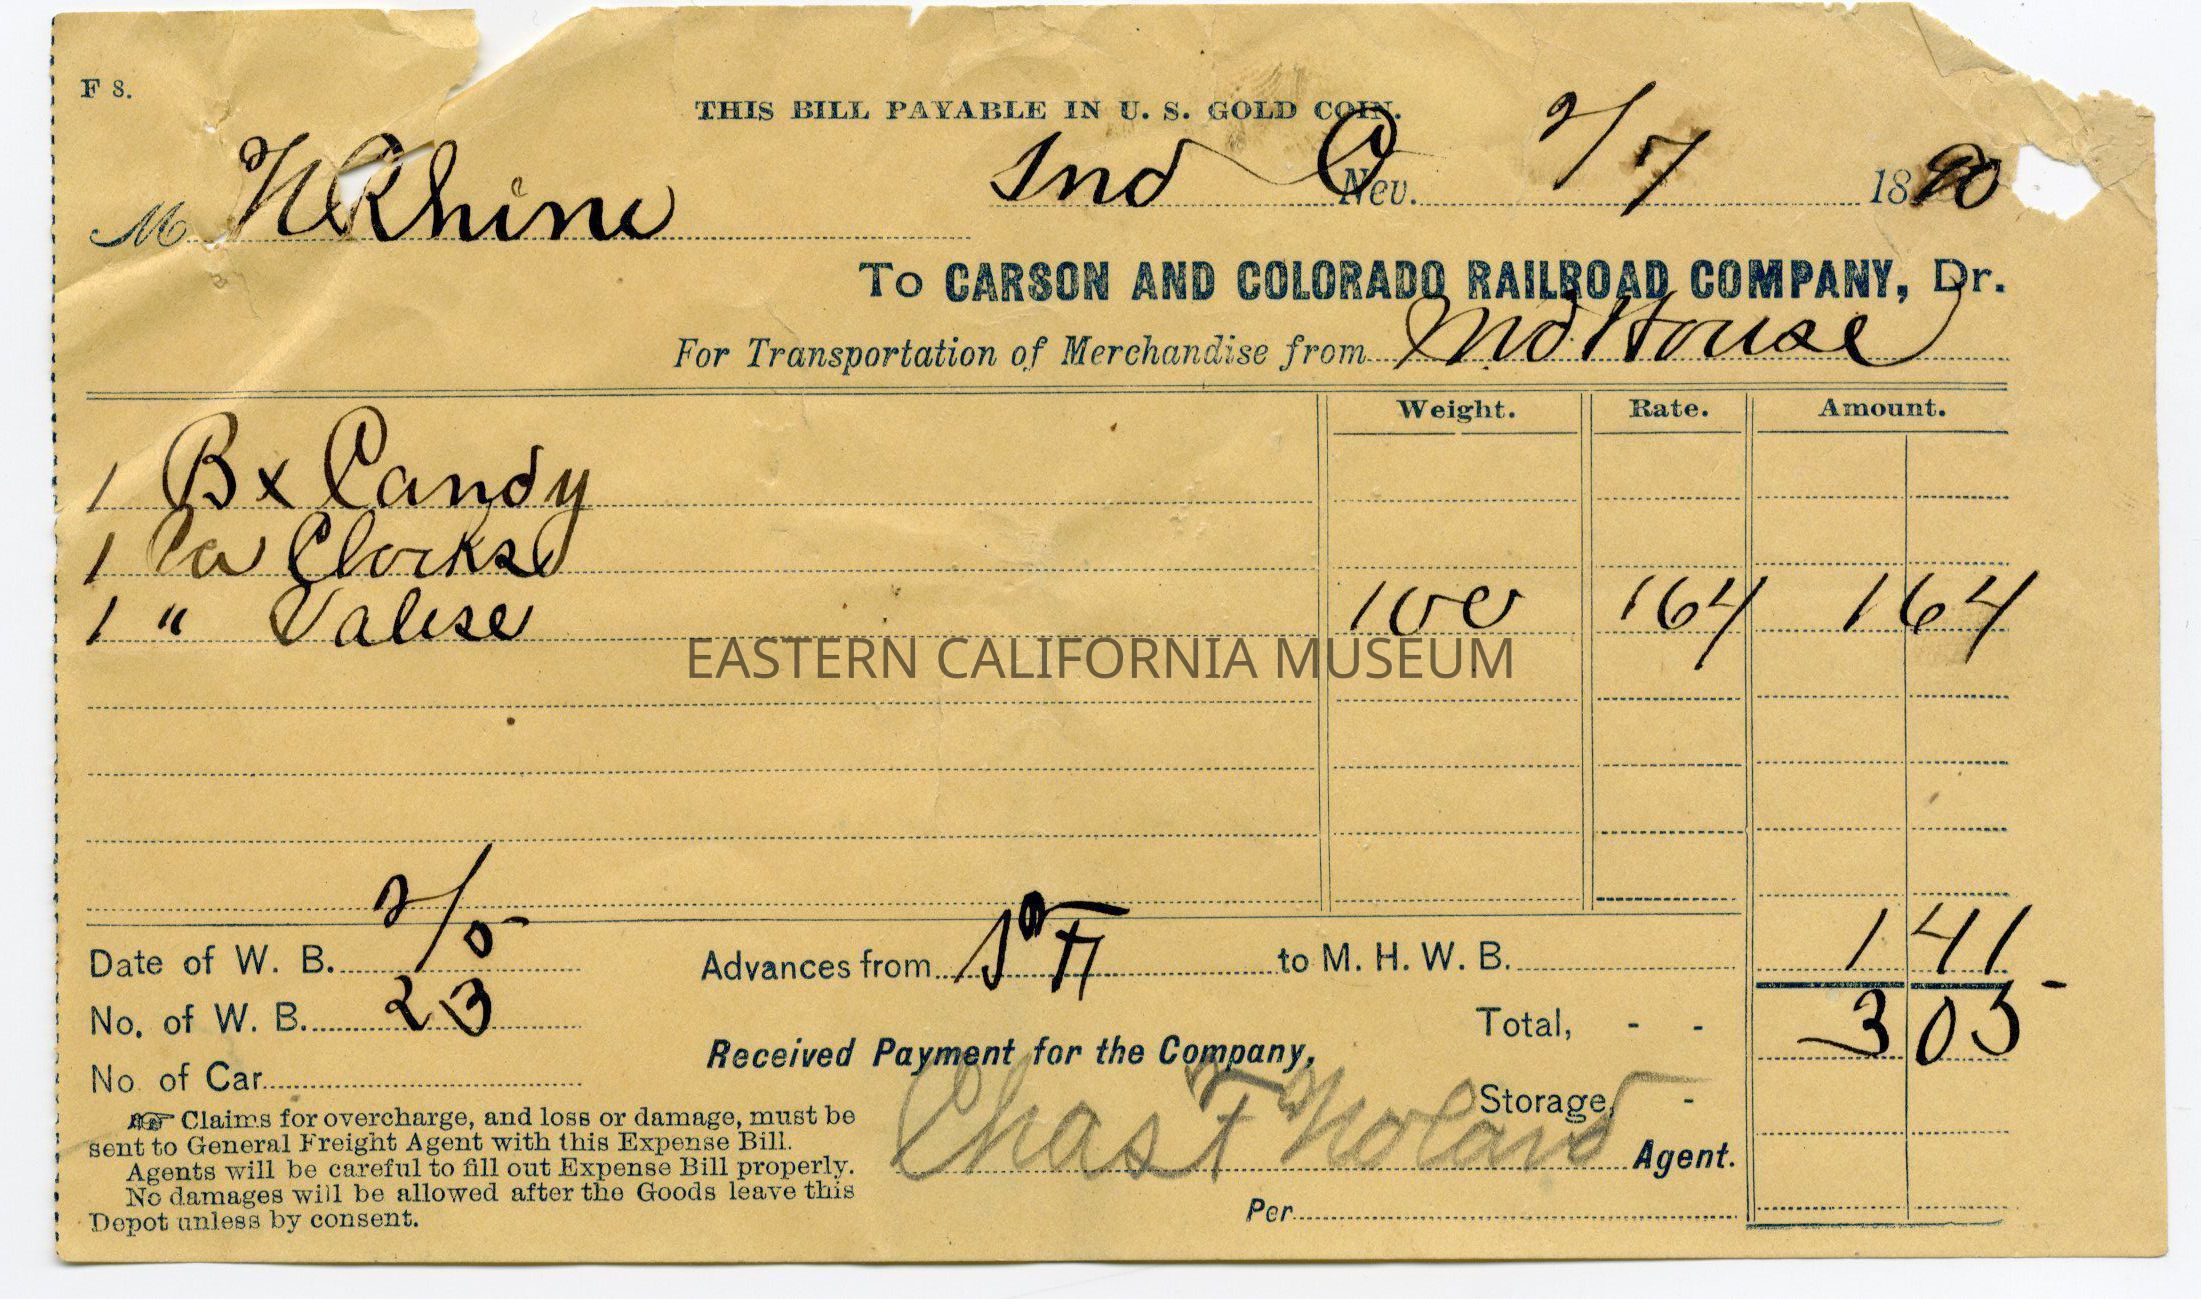 F 8.
THIS BILL PAYABLE IN U. S. GOLD COIN.
Ind Nev. 2/7 1890
M N Rhine
To CARSON AND COLORADO RAILROAD COMPANY, Dr.
For Transportation of Merchandise from Md House
Weight. Rate. Amount.
1 Bx Candy
1 Ca Clocks
1 " Valise 100 164 1 64
EASTERN CALIFORNIA MUSEUM
Date of W. B. 2/5 Advances from S F to M. H. W. B. 1 41
No. of W. B. 23 Total, - - 3 05
Received Payment for the Company,
No. of Car
Storage, -
Chas F Noland Agent.
Per
☞ Claims for overcharge, and loss or damage, must be
sent to General Freight Agent with this Expense Bill.
Agents will be careful to fill out Expense Bill properly.
No damages will be allowed after the Goods leave this
Depot unless by consent.